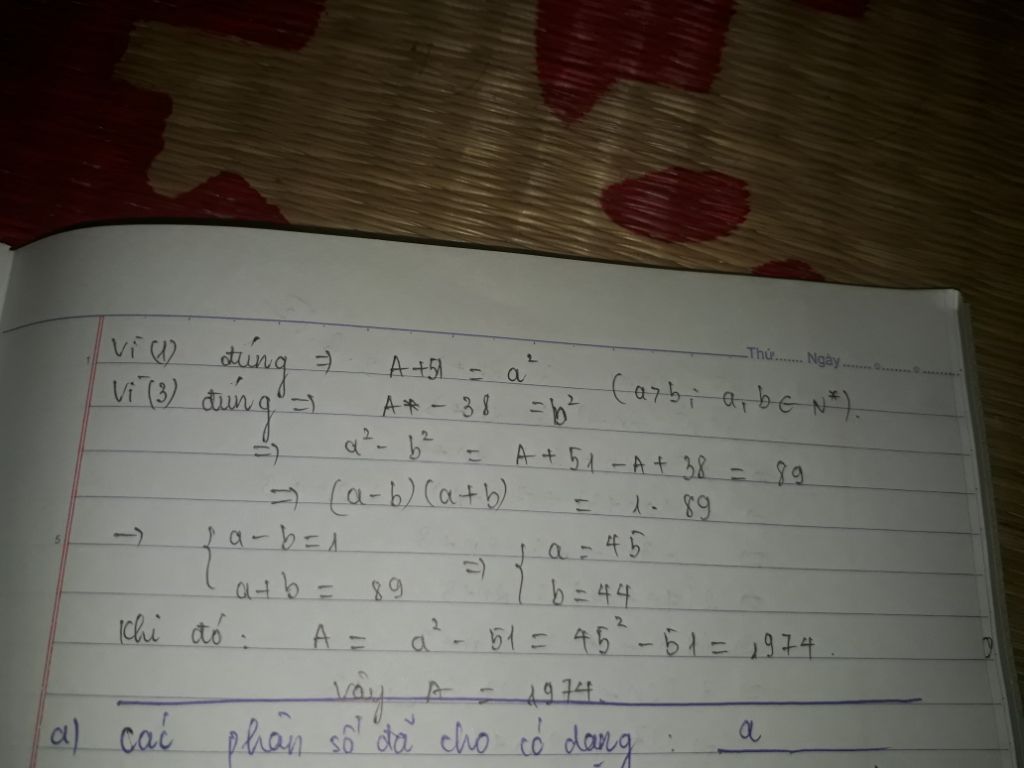 Thứ....... Ngày.......
Vì (1) đúng ⇒ A+51 = a²
Vì (3) đúng ⇒ A - 38 = b² (a>b; a, b ∈ N*).
⇒ a² - b² = A + 51 - A + 38 = 89
⇒ (a-b)(a+b) = 1. 89
→ { a - b = 1 ⇒ { a = 45
a+b = 89 b = 44
Khi đó: A = a² - 51 = 45² - 51 = 1974.
Vậy A = 1974.
a) các phân số đã cho có dạng: a